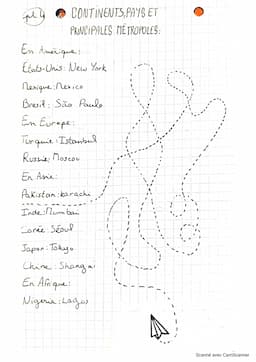 CONTINENTS, PAYS ET
PRINCIPALES MÉTROPOLES:
En Amérique:
États-Unis: New York
Mexique: Mexico
Brésil: São Paulo
En Europe:
Turquie: Istanbul
Russie: Moscou
En Asie:
Pakistan: karachi
Inde: Mumbai
Corée: Séoul
Japon: Tokyo
Chine: Shangai
En Afrique:
Nigeria: Lagos
Scanné avec CamScanner